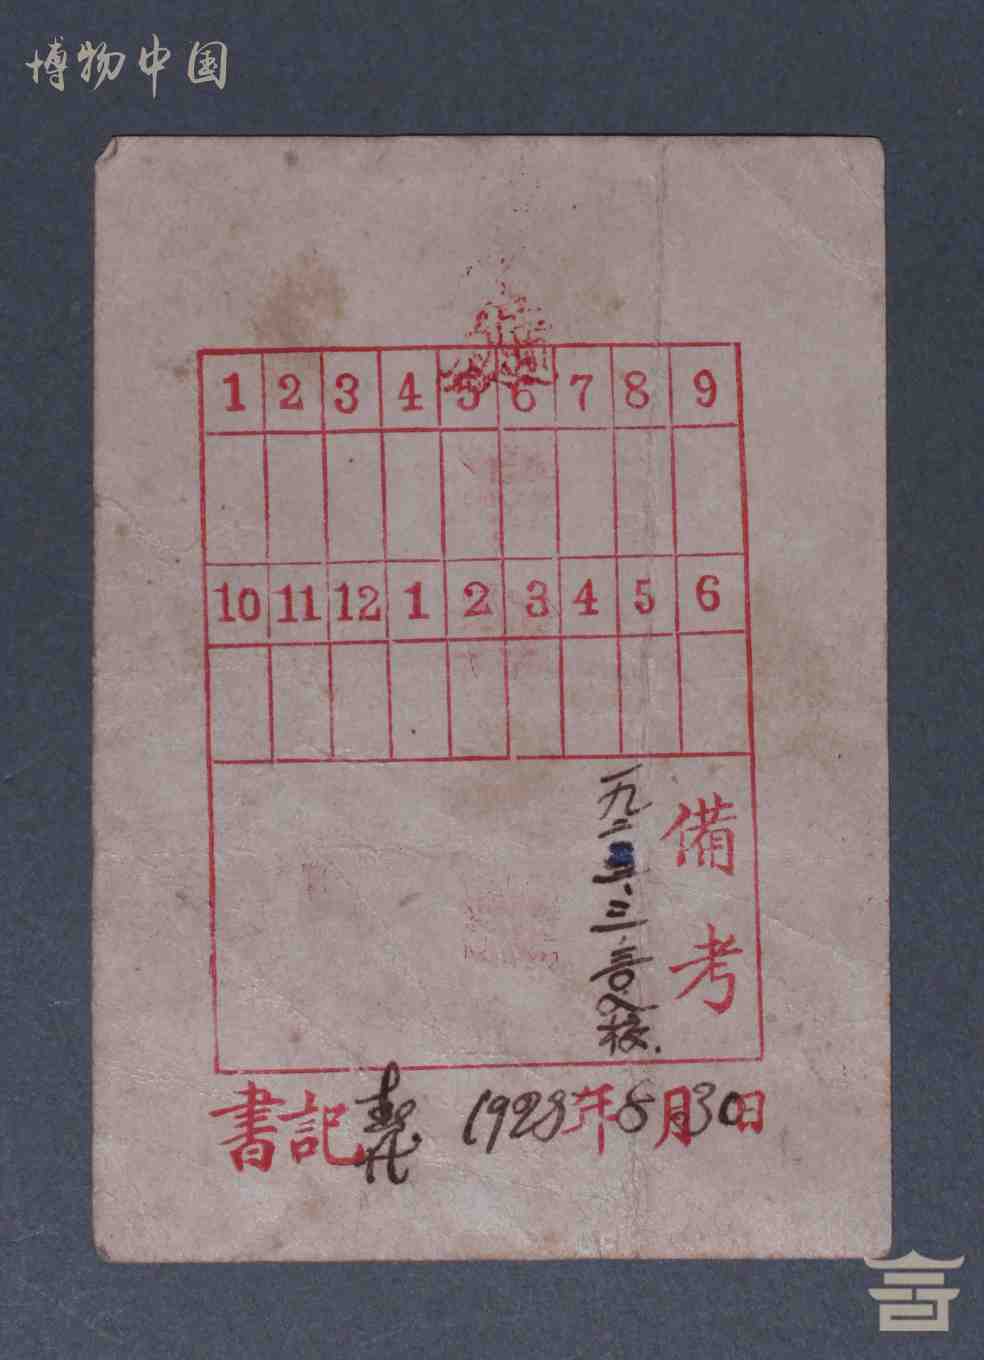 博物中国
1 2 3 4 5 6 7 8 9
10 11 12 1 2 3 4 5 6
備考
一九二
書記 1928年8月30日